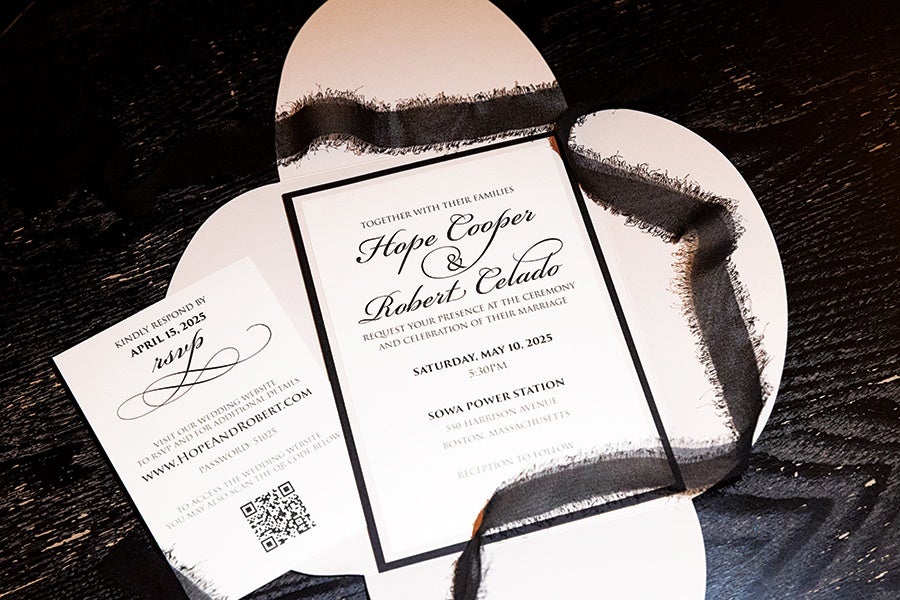 TOGETHER WITH THEIR FAMILIES
Hope Cooper
&
Robert Celado
REQUEST YOUR PRESENCE AT THE CEREMONY
AND CELEBRATION OF THEIR MARRIAGE
SATURDAY, MAY 10, 2025
5:30PM
SOWA POWER STATION
550 HARRISON AVENUE
BOSTON, MASSACHUSETTS
RECEPTION TO FOLLOW
KINDLY RESPOND BY
APRIL 15, 2025
rsvp
VISIT OUR WEDDING WEBSITE
TO RSVP AND FOR ADDITIONAL DETAILS
WWW.HOPEANDROBERT.COM
PASSWORD: 51025
TO ACCESS THE WEDDING WEBSITE
YOU MAY ALSO SCAN THE QR CODE BELOW